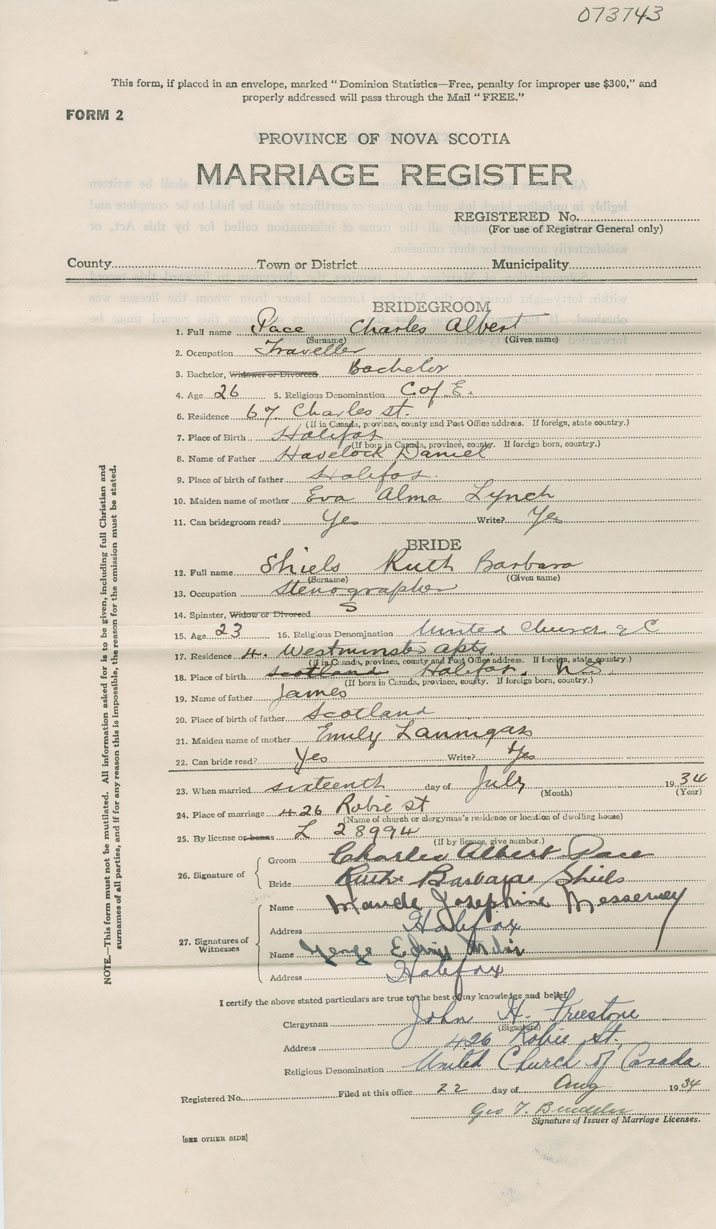 073743
This form, if placed in an envelope, marked "Dominion Statistics—Free, penalty for improper use $300," and
properly addressed will pass through the Mail "FREE."
FORM 2
PROVINCE OF NOVA SCOTIA
MARRIAGE REGISTER
REGISTERED No.
(For use of Registrar General only)
County Town or District Municipality
BRIDEGROOM
1. Full name Pace Charles Albert
(Surname) (Given name)
2. Occupation Traveller
3. Bachelor, Widower or Divorced Bachelor
4. Age 26 5. Religious Denomination C of E.
6. Residence 67 Charles st.
(If in Canada, province, county and Post Office address. If foreign, state country.)
7. Place of Birth Halifax
(If born in Canada, province, county. If foreign born, country.)
8. Name of Father Havelock Daniel
9. Place of birth of father Halifax.
10. Maiden name of mother Eva Alma Lynch
11. Can bridegroom read? Yes Write? Yes
BRIDE
12. Full name Shiels Ruth Barbara
(Surname) (Given name)
13. Occupation Stenographer
14. Spinster, Widow or Divorced S
15. Age 23 16. Religious Denomination United Church of C
17. Residence 4. Westminster apts.
(If in Canada, province, county and Post Office address. If foreign, state country.)
18. Place of birth Scotland Halifax, N.S.
(If born in Canada, province, county. If foreign born, country.)
19. Name of father James
20. Place of birth of father Scotland
21. Maiden name of mother Emily
22. Can bride read? Yes Write? Yes
23. When married sixteenth day of July 1934
(Month) (Year)
24. Place of marriage 426 Robie st
(Name of church or clergyman's residence or location of dwelling house)
25. By license or banns L 28994
(If by license, give number.)
26. Signature of
Groom Charles Albert Pace
Bride Ruth Barbara Shiels
27. Signatures of Witnesses
Name Maude Josephine Messervey
Address Halifax
Name George
Address Halifax
I certify the above stated particulars are true to the best of my knowledge and belief.
Clergyman John H. Freestone
(Signature)
Address 426 Robie St.
Religious Denomination United Church of Canada
Registered No. Filed at this office 22 day of Aug 1934
Geo T.
Signature of Issuer of Marriage Licenses.
[SEE OTHER SIDE]
NOTE.—This form must not be mutilated. All information asked for is to be given, including full Christian and
surnames of all parties, and if for any reason this is impossible, the reason for the omission must be stated.